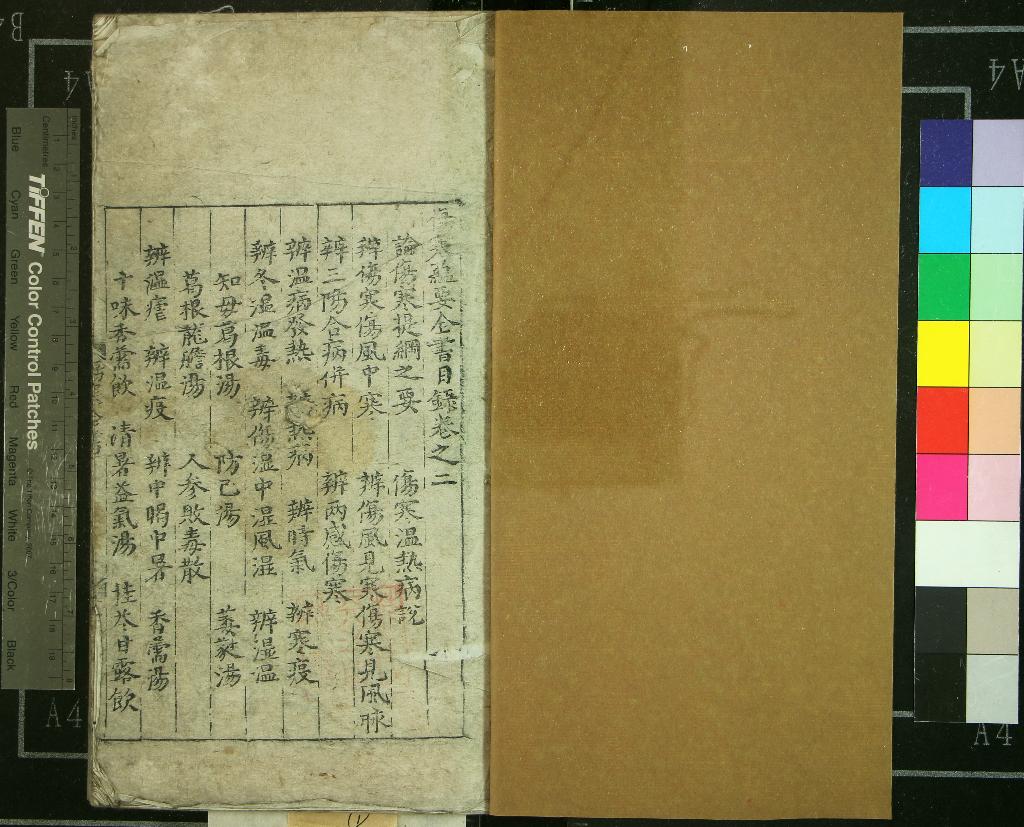 傷寒蘊要全書目錄卷之二
論傷寒提綱之要 傷寒溫熱病說
辨傷寒傷風中寒 辨傷風見寒傷寒見風脉
辨三陽合病併病 辨兩感傷寒
辨溫病發熱 熱病 辨時氣 辨寒疫
辨冬溫溫毒 辨傷濕中濕風濕 辨濕溫
知母葛根湯 防已湯 葳蕤湯
葛根龍膽湯 人參敗毒散
辨溫瘧 辨溫疫 辨中暍中暑 香薷湯
十味香薷飲 清暑益氣湯 桂苓甘露飲
TIFFEN Color Control Patches
Blue Cyan Green Yellow Red Magenta White 3/Color Black
Centimetres
Inches
A4
A4
A4
A4
B